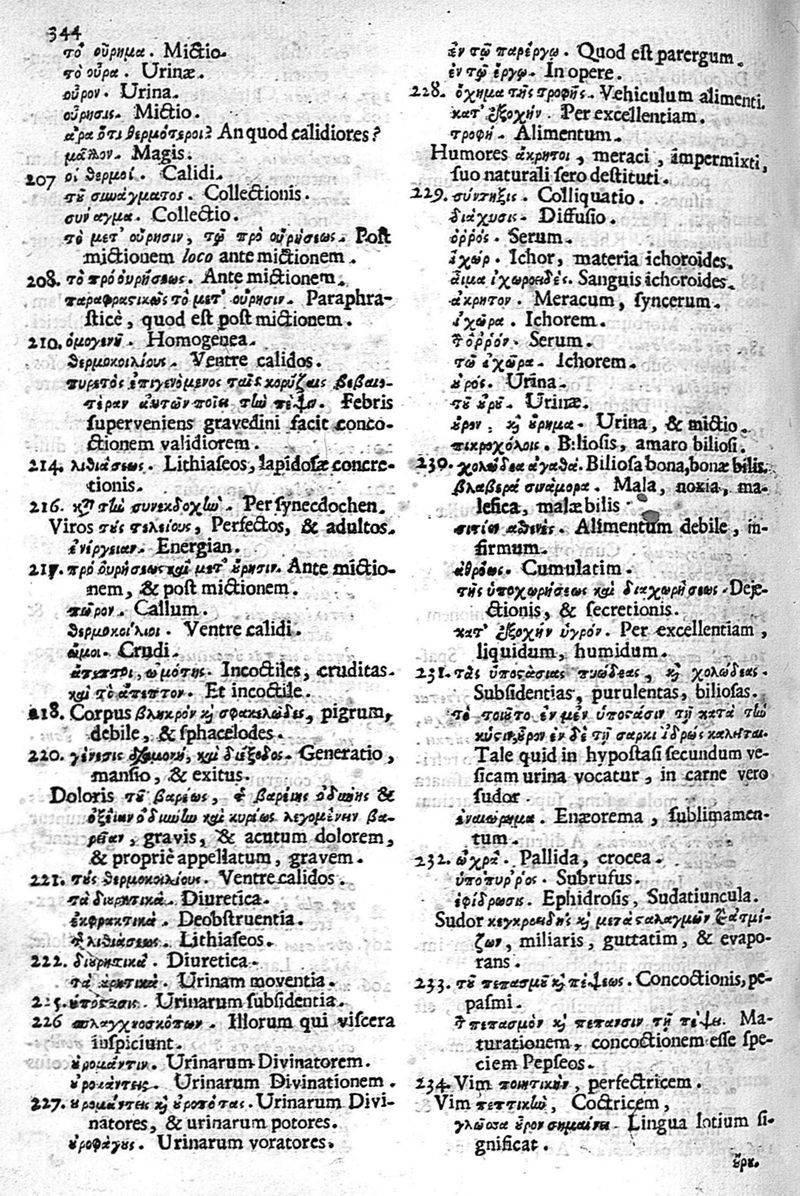 344
τὸ οὔρημα. Mictio.
τὸ οὖρα. Urinæ.
οὖρον. Urina.
οὔρησις. Mictio.
ἆρα ὅτι θερμότεροι? An quod calidiores?
μᾶλλον. Magis.
207 οἱ θερμοί. Calidi.
τοῦ συνάγματος. Collectionis.
σύναγμα. Collectio.
τὸ μετ' οὔρησιν, τῷ πρὸ οὐρήσεως. Post
mictionem loco ante mictionem.
208. τὸ πρὸ οὐρήσεως. Ante mictionem.
παραφραστικῶς τὸ μετ' οὔρησιν. Paraphra-
sticè, quod est post mictionem.
210. ὁμογενῆ. Homogenea.
θερμοκοιλίους. Ventre calidos.
πυρετὸς ἐπιγενόμενος ταῖς κορύζαις βεβαιο-
τέραν αὐτῶν ποιεῖ τὴν πέψιν. Febris
superveniens gravedini facit conco-
ctionem validiorem.
214. λιθιάσεως. Lithiaseos, lapidosæ concre-
tionis.
216. κατὰ τὴν συνεκδοχήν. Per synecdochen.
Viros τοὺς τελείους, Perfectos, & adultos.
ἐνέργειαν. Energian.
217. πρὸ οὐρήσεως καὶ μετ' οὔρησιν. Ante mictio-
nem, & post mictionem.
πῶρον. Callum.
θερμοκοίλιοι. Ventre calidi.
ὠμοί. Crudi.
ἄπεπτοι, ὠμότης. Incoctiles, cruditas.
καὶ τὸ ἄπεπτον. Et incoctile.
218. Corpus βληχρὸν καὶ σφακελῶδες, pigrum,
debile, & sphacelodes.
220. γένεσις διαμονὴ, καὶ διέξοδος. Generatio,
mansio, & exitus.
Doloris τοῦ βαρέως, τῆς βαρείης ὀδύνης &
ὀξεῖαν ὀδύνην καὶ κυρίως λεγομένην βα-
ρεῖαν, gravis, & acutum dolorem,
& propriè appellatum, gravem.
221. τοὺς θερμοκοιλίους. Ventre calidos.
τὰ διουρητικά. Diuretica.
ἐκφρακτικά. Deobstruentia.
τῆς λιθιάσεως. Lithiaseos.
222. διουρητικά. Diuretica.
τὰ οὐρητικά. Urinam moventia.
225. ὑπόστασις. Urinarum subsidentia.
226 σπλαγχνοσκόπων. Illorum qui viscera
inspiciunt.
οὐρομάντιν. Urinarum Divinatorem.
οὐρομάντεις. Urinarum Divinationem.
227. οὐρομάντεις καὶ οὐροπότας. Urinarum Divi-
natores, & urinarum potores.
οὐροφάγους. Urinarum voratores.
ἐν τῷ παρέργῳ. Quod est parergum.
ἐν τῷ ἔργῳ. In opere.
228. ὄχημα τῆς τροφῆς. Vehiculum alimenti.
κατ' ἐξοχήν. Per excellentiam.
τροφή. Alimentum.
Humores ἄκρητοι, meraci, impermixti,
suo naturali sero destituti.
229. σύντηξις. Colliquatio.
διάχυσις. Diffusio.
ὀρρός. Serum.
ἰχώρ. Ichor, materia ichoroides.
αἷμα ἰχωροειδές. Sanguis ichoroides.
ἄκρητον. Meracum, syncerum.
ἰχῶρα. Ichorem.
τὸν ὀρρόν. Serum.
τὸν ἰχῶρα. Ichorem.
οὖρος. Urina.
τοῦ οὔρου. Urinæ.
οὖρον. καὶ οὔρημα. Urina, & mictio.
πικροχόλοις. Biliosis, amaro biliosi.
230. χολώδεα ἀγαθά. Biliosa bona, bonæ bilis.
βλαβερὰ σινάμορα. Mala, noxia, ma-
lefica, malæ bilis
σιτίον ἀσθενές. Alimentum debile, in-
firmum.
ἀθρόως. Cumulatim.
τῆς ὑποχωρήσεως καὶ διαχωρήσεως. Deje-
ctionis, & secretionis.
κατ' ἐξοχὴν ὑγρόν. Per excellentiam,
liquidum, humidum.
231. τὰς ὑποστάσιας πυώδεας, καὶ χολώδεας.
Subsidentias, purulentas, biliosas.
τὸ τοιοῦτο ἐν μὲν ὑποστάσιν τῇ κατὰ τὴν
κύστιν, οὖρον ἐν δὲ τῇ σαρκὶ ἱδρὼς καλεῖται.
Tale quid in hypostasi secundum ve-
sicam urina vocatur, in carne vero
sudor.
ἐναιώρημα. Enæorema, sublimamen-
tum.
232. ὠχρά. Pallida, crocea.
ὑπόπυρρος. Subrufus.
ἐφίδρωσις. Ephidrosis, Sudatiuncula.
Sudor κεγχροειδὴς καὶ μετὰ σταλαγμῶν ἐξατμί-
ζων, miliaris, guttatim, & evapo-
rans.
233. τοῦ πεπασμοῦ καὶ πέψεως. Concoctionis, pe-
pasmi.
τὸν πεπασμὸν καὶ πέπανσιν τῇ πέψει. Ma-
turationem, concoctionem esse spe-
ciem Pepseos.
234. Vim ποιητικὴν, perfectricem.
Vim πεπτικὴν, Coctricem,
γλῶσσα οὖρον σημαίνει. Lingua lotium si-
gnificat.
οὔρου.